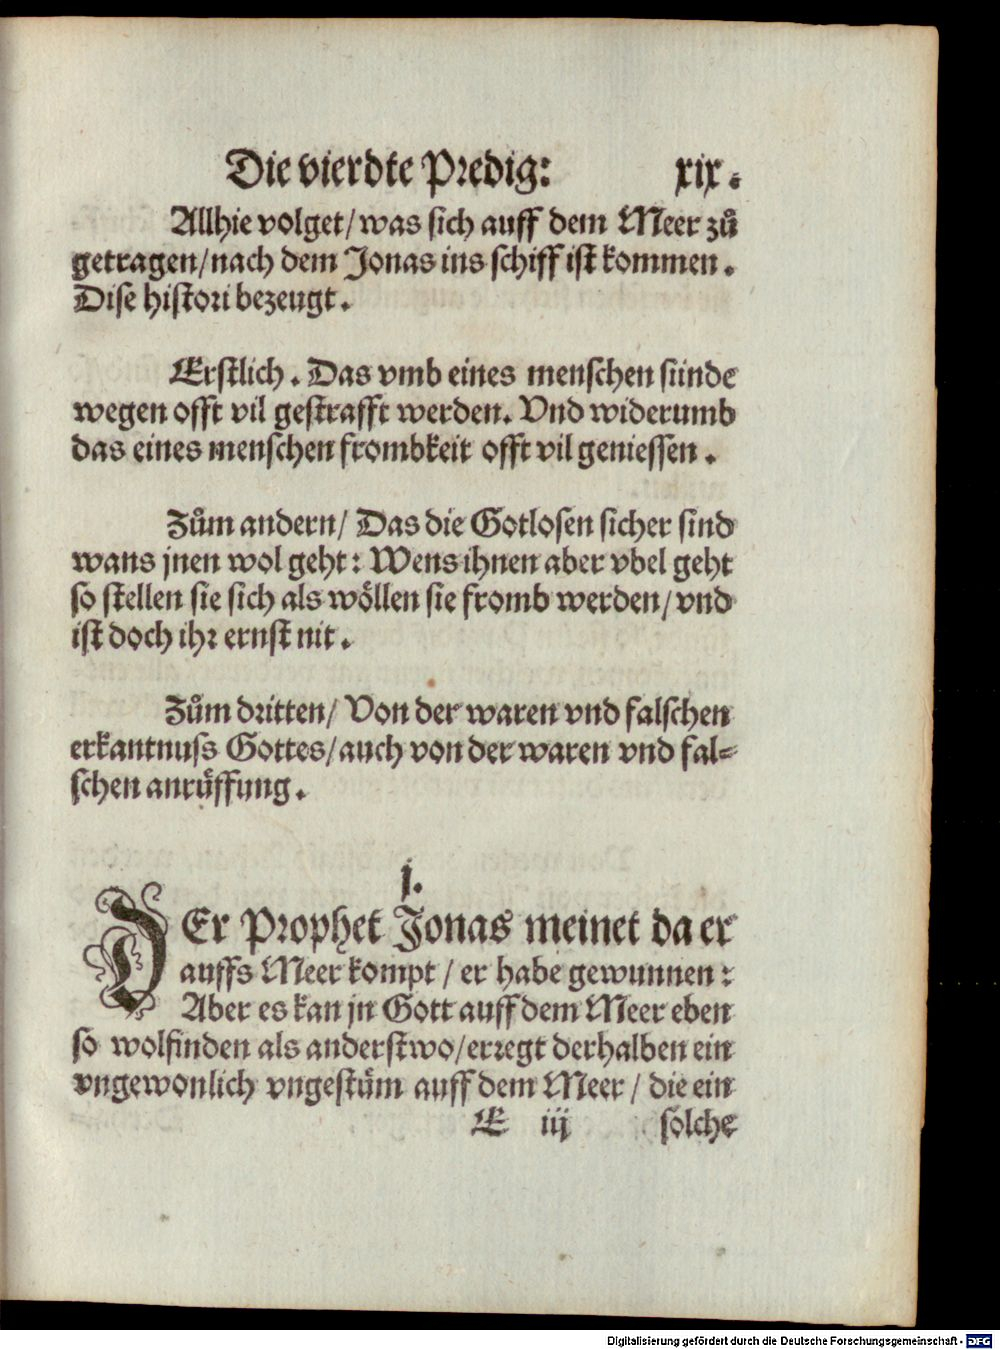 Die vierdte Predig: xix.
Allhie volget/ was sich auff dem Meer zů
getragen/nach dem Jonas ins schiff ist kommen.
Dise histori bezeugt.
Erstlich. Das vmb eines menschen sünde
wegen offt vil gestrafft werden. Vnd widerumb
das eines menschen frombkeit offt vil geniessen.
Zům andern/ Das die Gotlosen sicher sind
wans jnen wol geht: Wens ihnen aber vbel geht
so stellen sie sich als wöllen sie fromb werden/ vnd
ist doch ihr ernst nit.
Zům dritten/ Von der waren vnd falschen
erkantnuss Gottes/auch von der waren vnd fal-
schen anrüffung.
I.
DEr Prophet Jonas meinet da er
auffs Meer kompt / er habe gewunnen:
Aber es kan jn Gott auff dem Meer eben
so wolfinden als anderstwo/erregt derhalben ein
vngewonlich vngestüm auff dem Meer / die ein
E iij solche
Digitalisierung gefördert durch die Deutsche Forschungsgemeinschaft - DFG